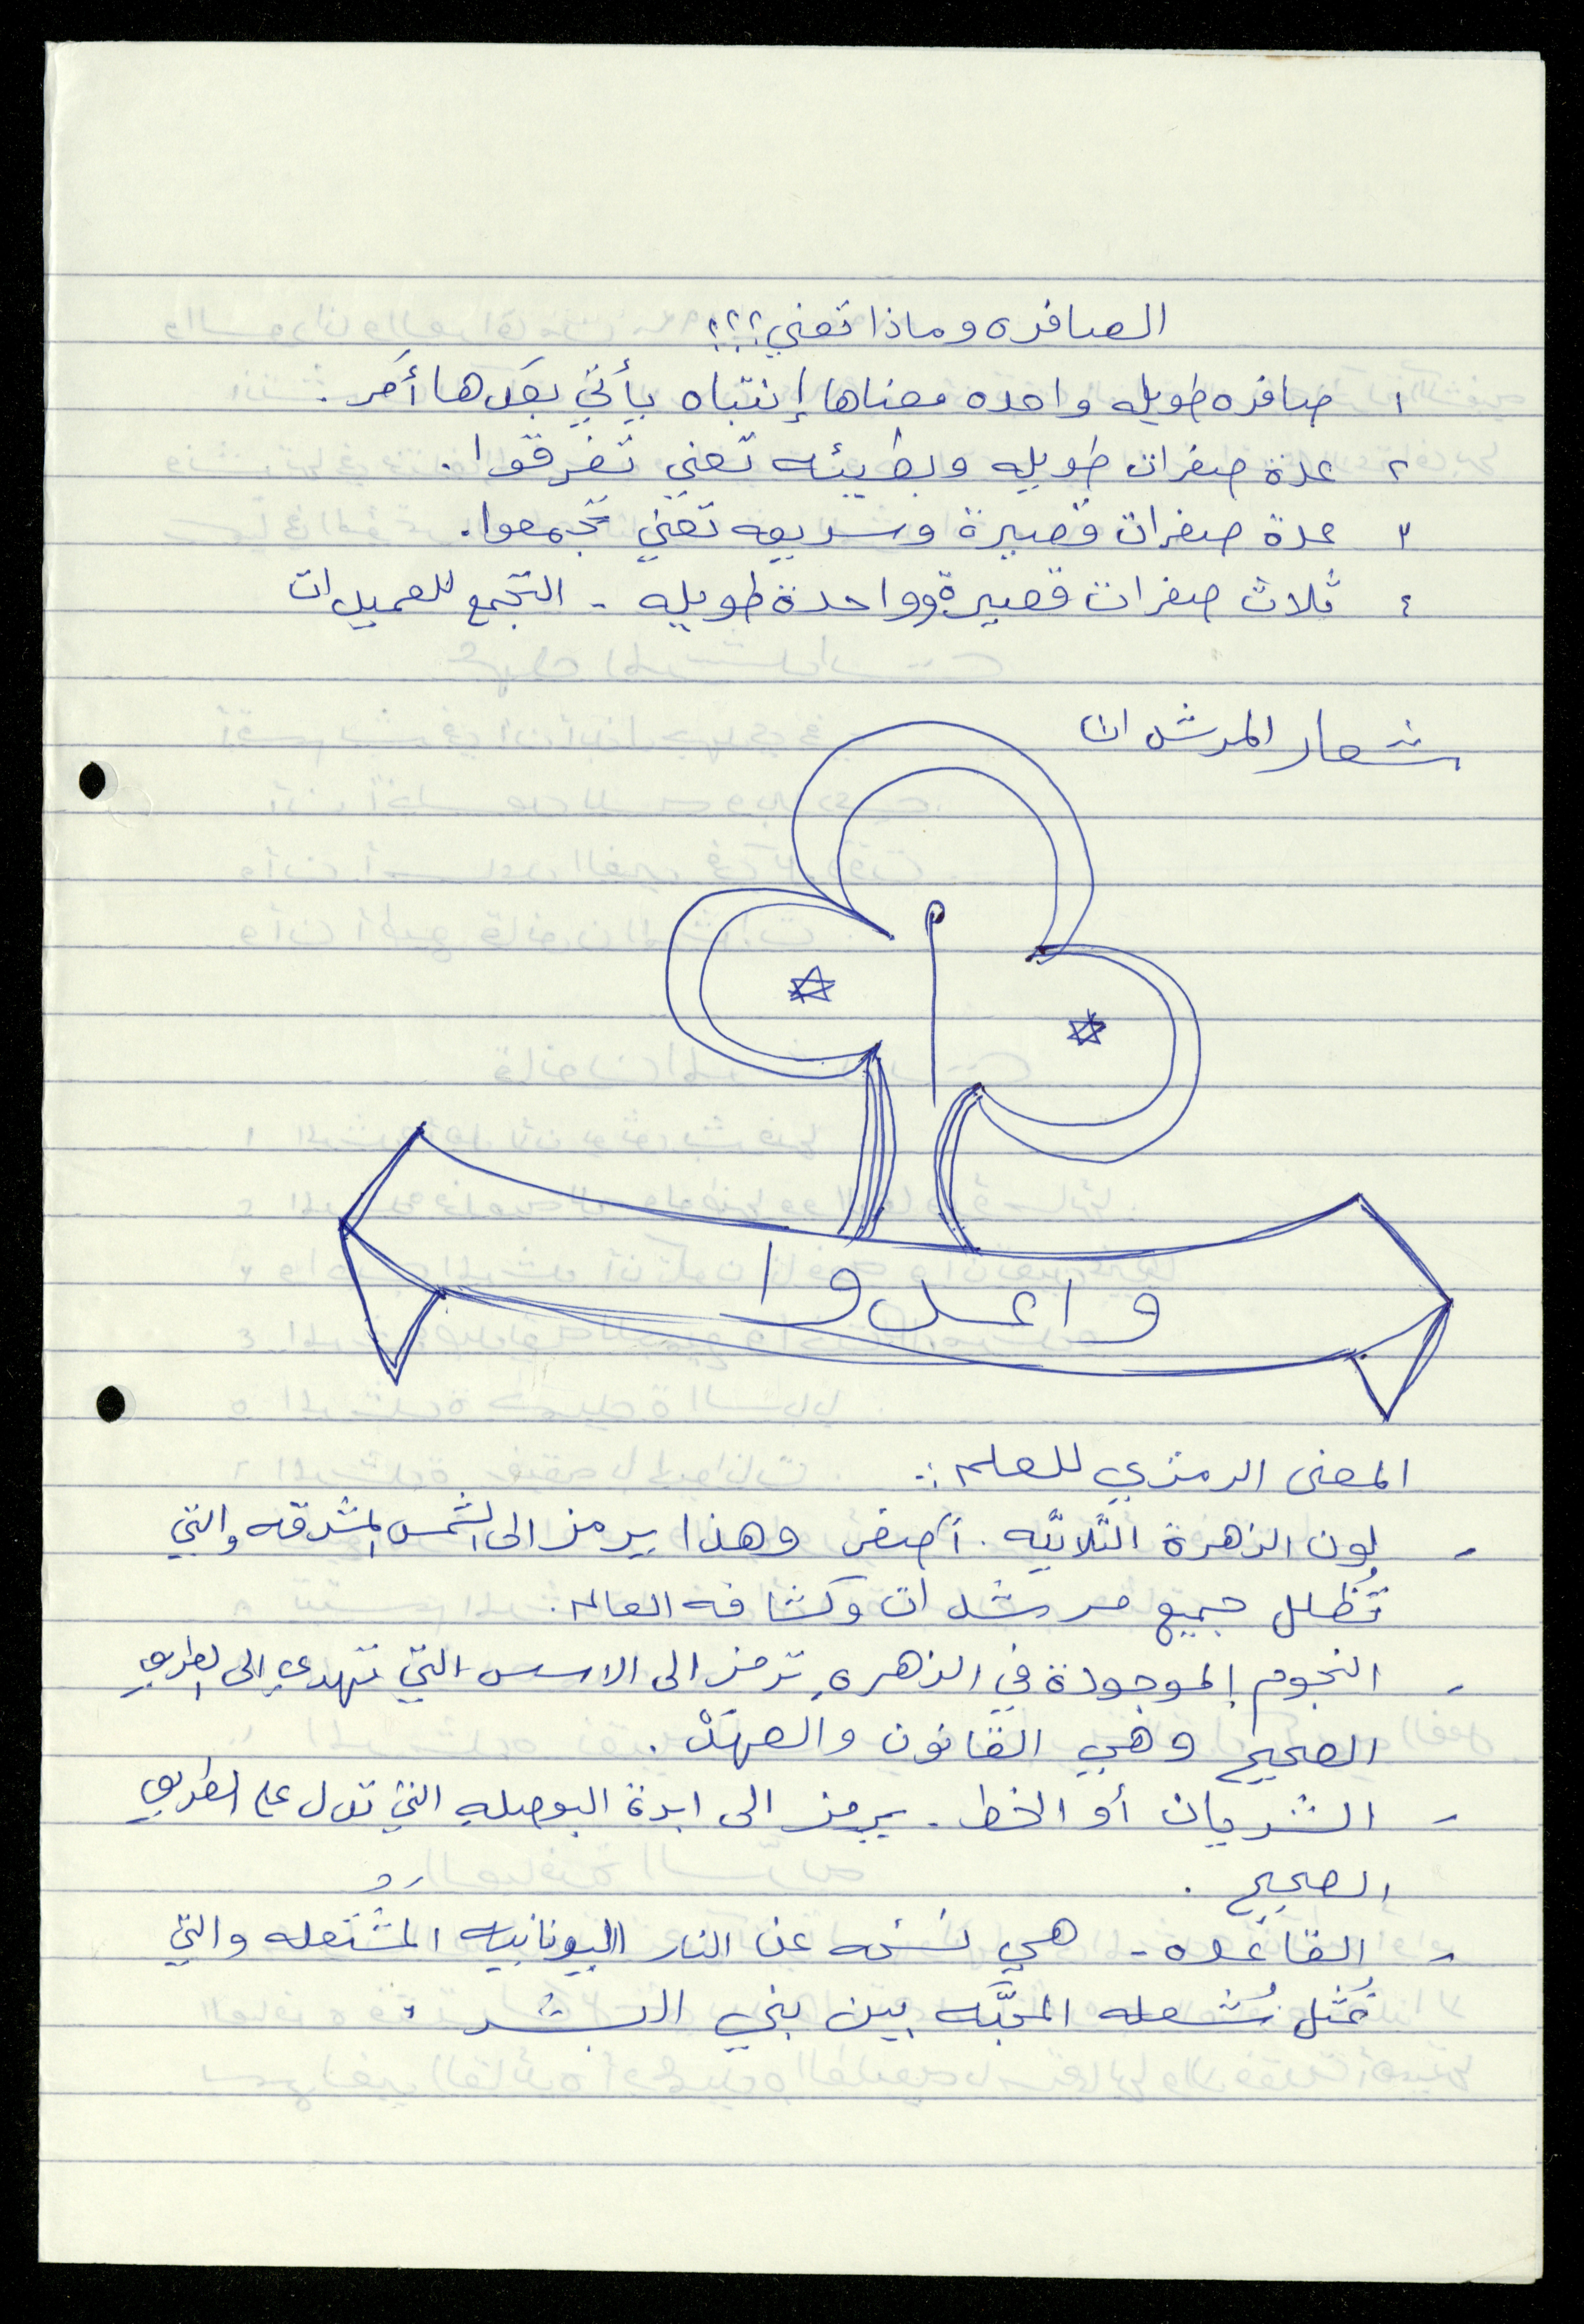 الصافره وماذا تعني؟؟؟
١ صافره طويله واحده معناها إنتباه يأتي بعدها أمر.
٢ عدة صفرات طويله وبطيئه تعني تفرقوا.
٣ عدة صفرات قصيرة وسريعه تعني تجمعوا.
٤ ثلاث صفرات قصيرة وواحدة طويله - التجمع للعميدات
شعار المرشدات
واعدوا
المعنى الرمزي للعلم :.
- لون الزهرة الثلاثيه. أصفر وهذا يرمز الى الشمس المشرقه والتي
تُظلل جميع مرشدات وكشافه العالم.
- النجوم الموجودة في الزهره ترمز الى الاسس التي تهدي الى الطريق
الصحيح وهي القانون والعهد.
- الشريان أو الخط. يرمز الى ابرة البوصله التي تدل على الطريق
الصحيح.
- القاعده - هي نسخه عن النار اليونانيه المشتعله والتي
تُمثل شُعله المحبَّه بين بني البشر.